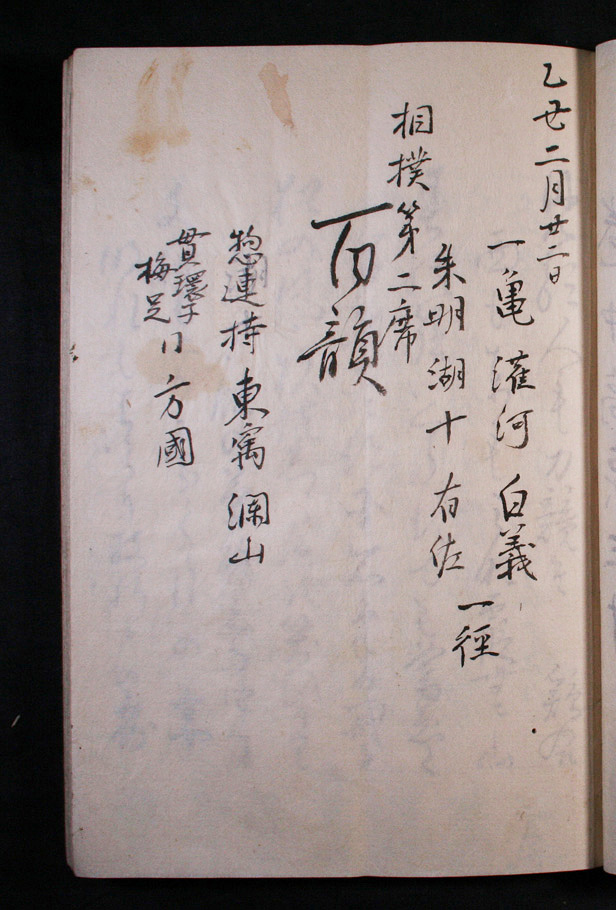 乙丑二月廿二日
一亀 灌河 白義
朱明 湖十 有佐 一徑
相撲第二席
百韻
惣連 持 東寓 瀾山
貫環子
梅足 〃 方國